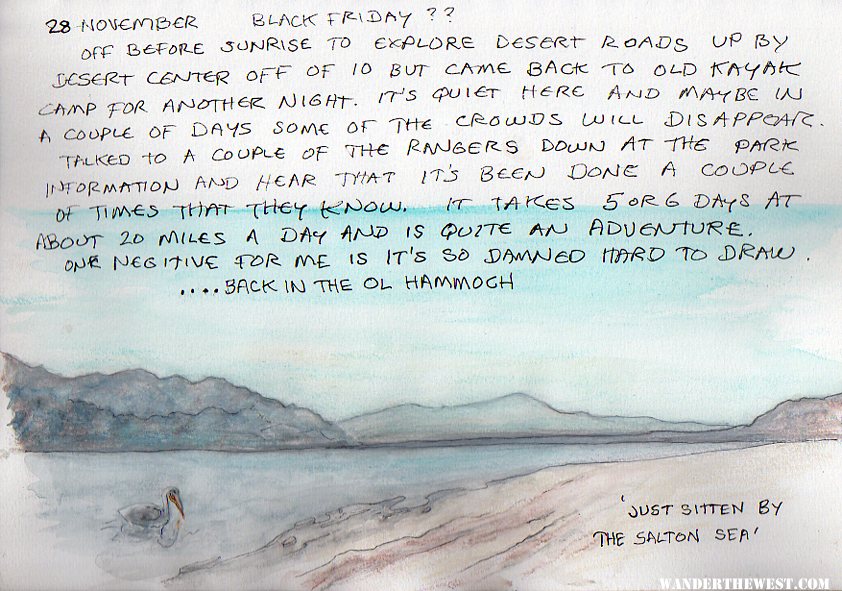 28 NOVEMBER BLACK FRIDAY ??
OFF BEFORE SUNRISE TO EXPLORE DESERT ROADS UP BY
DESERT CENTER OFF OF 10 BUT CAME BACK TO OLD KAYAK
CAMP FOR ANOTHER NIGHT. IT'S QUIET HERE AND MAYBE IN
A COUPLE OF DAYS SOME OF THE CROWDS WILL DISAPPEAR.
TALKED TO A COUPLE OF THE RANGERS DOWN AT THE PARK
INFORMATION AND HEAR THAT IT'S BEEN DONE A COUPLE
OF TIMES THAT THEY KNOW. IT TAKES 5 OR 6 DAYS AT
ABOUT 20 MILES A DAY AND IS QUITE AN ADVENTURE.
ONE NEGITIVE FOR ME IS IT'S SO DAMNED HARD TO DRAW.
....BACK IN THE OL HAMMOCH
'JUST SITTEN BY
THE SALTON SEA'
WANDERTHEWEST.COM